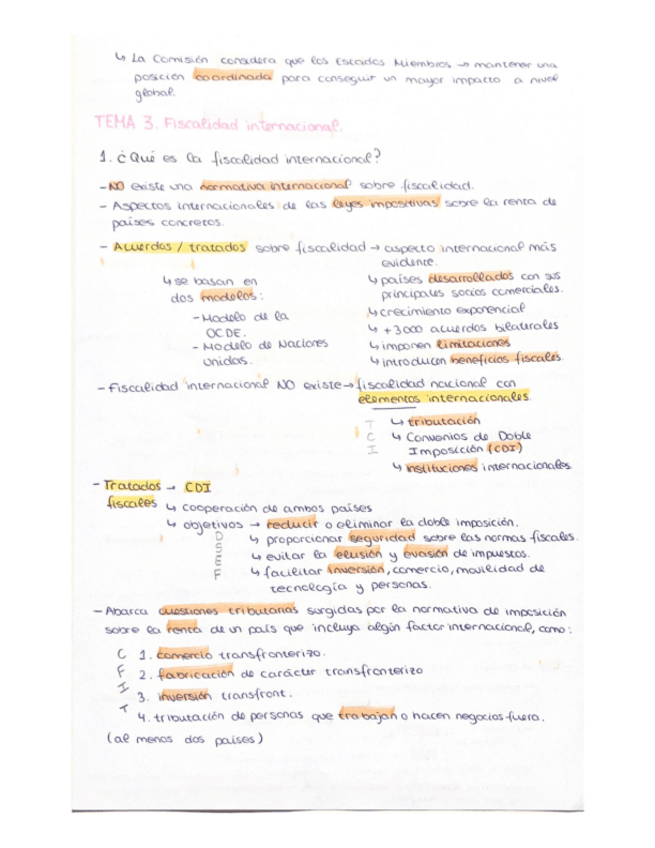 ↳ La Comisión considera que los Estados Miembros → mantener una
posición coordinada para conseguir un mayor impacto a nivel
global.
TEMA 3. Fiscalidad internacional.
1. ¿Qué es la fiscalidad internacional?
- NO existe una normativa internacional sobre fiscalidad.
- Aspectos internacionales de las leyes impositivas sobre la renta de
países concretos.
- Acuerdos / tratados sobre fiscalidad → aspecto internacional más
evidente.
↳ se basan en
dos modelos:
- Modelo de la
OCDE.
- Modelo de Naciones
Unidas.
↳ países desarrollados con sus
principales socios comerciales.
↳ crecimiento exponencial
↳ +3000 acuerdos bilaterales
↳ imponen limitaciones
↳ introducen beneficios fiscales.
- Fiscalidad internacional NO existe → fiscalidad nacional con
elementos internacionales.
T ↳ tributación
C ↳ Convenios de Doble
I Imposición (CDI)
↳ instituciones internacionales.
- Tratados → CDI
fiscales ↳ cooperación de ambos países
↳ objetivos → reducir o eliminar la doble imposición.
D ↳ proporcionar seguridad sobre las normas fiscales.
S
E ↳ evitar la elusión y evasión de impuestos.
F ↳ facilitar inversión, comercio, movilidad de
tecnología y personas.
- Abarca cuestiones tributarias surgidas por la normativa de imposición
sobre la renta de un país que incluya algún factor internacional, como:
C 1. comercio transfronterizo.
F 2. fabricación de carácter transfronterizo
I 3. inversión transfront.
T 4. tributación de personas que trabajan o hacen negocios fuera.
(al menos dos países)